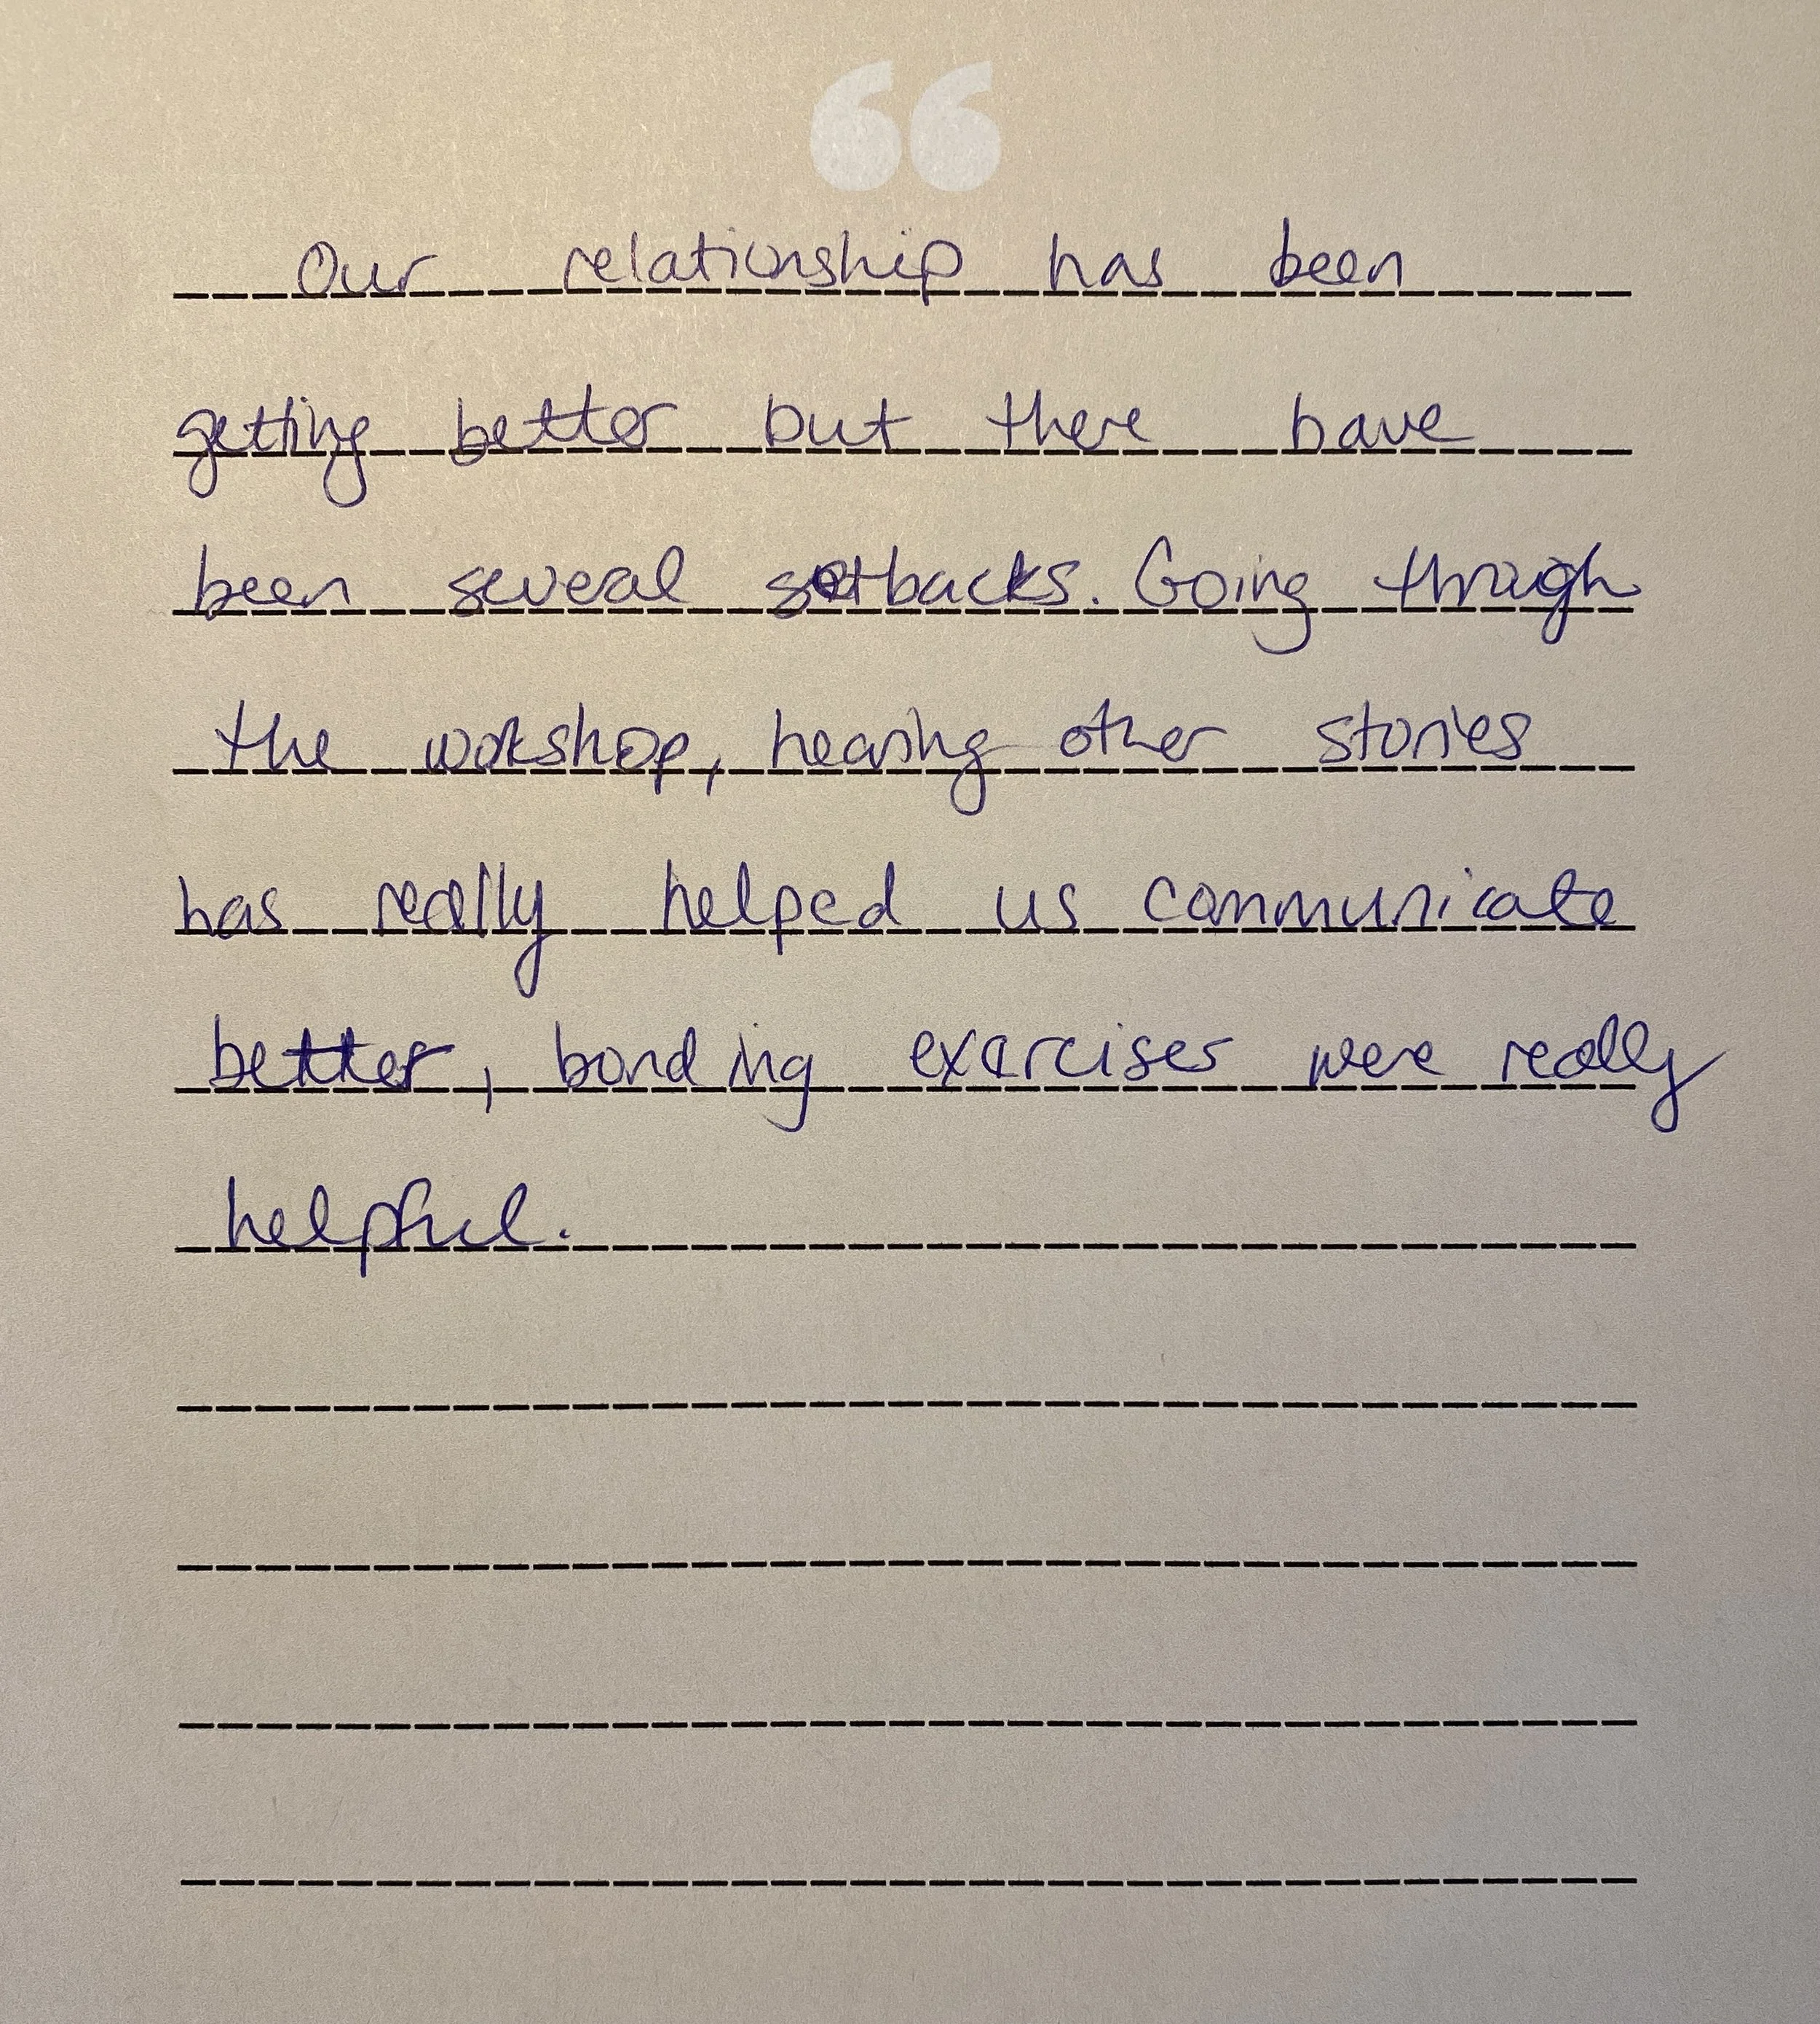 “
Our relationship has been
getting better but there have
been several setbacks. Going through
the workshop, hearing other stories
has really helped us communicate
better, bonding exercises were really
helpful.